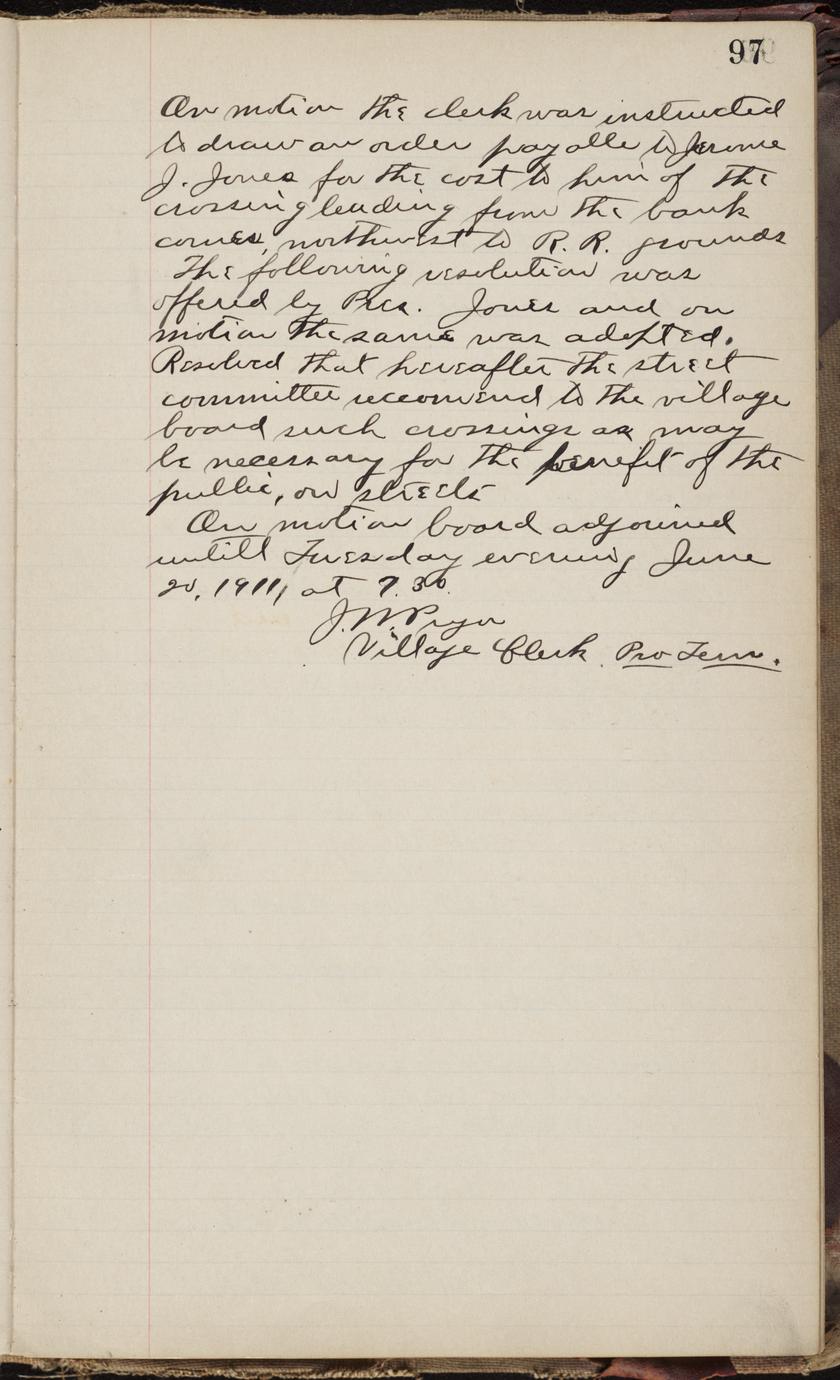 97
On motion the clerk was instructed
to draw an order payable to Jerome
J. Jones for the cost to him of the
crossing leading from the bank
corner, northwest to R. R. grounds
The following resolution was
offered by Pres. Jones and on
motion the same was adopted.
Resolved that hereafter the street
committee reccomend to the village
board such crossings as may
be necessary for the benefit of the
public, on streets
On motion board adjourned
untill Tuesday evening June
20, 1911, at 7.30.
J. W. Pryor
Village Clerk Pro Tem.